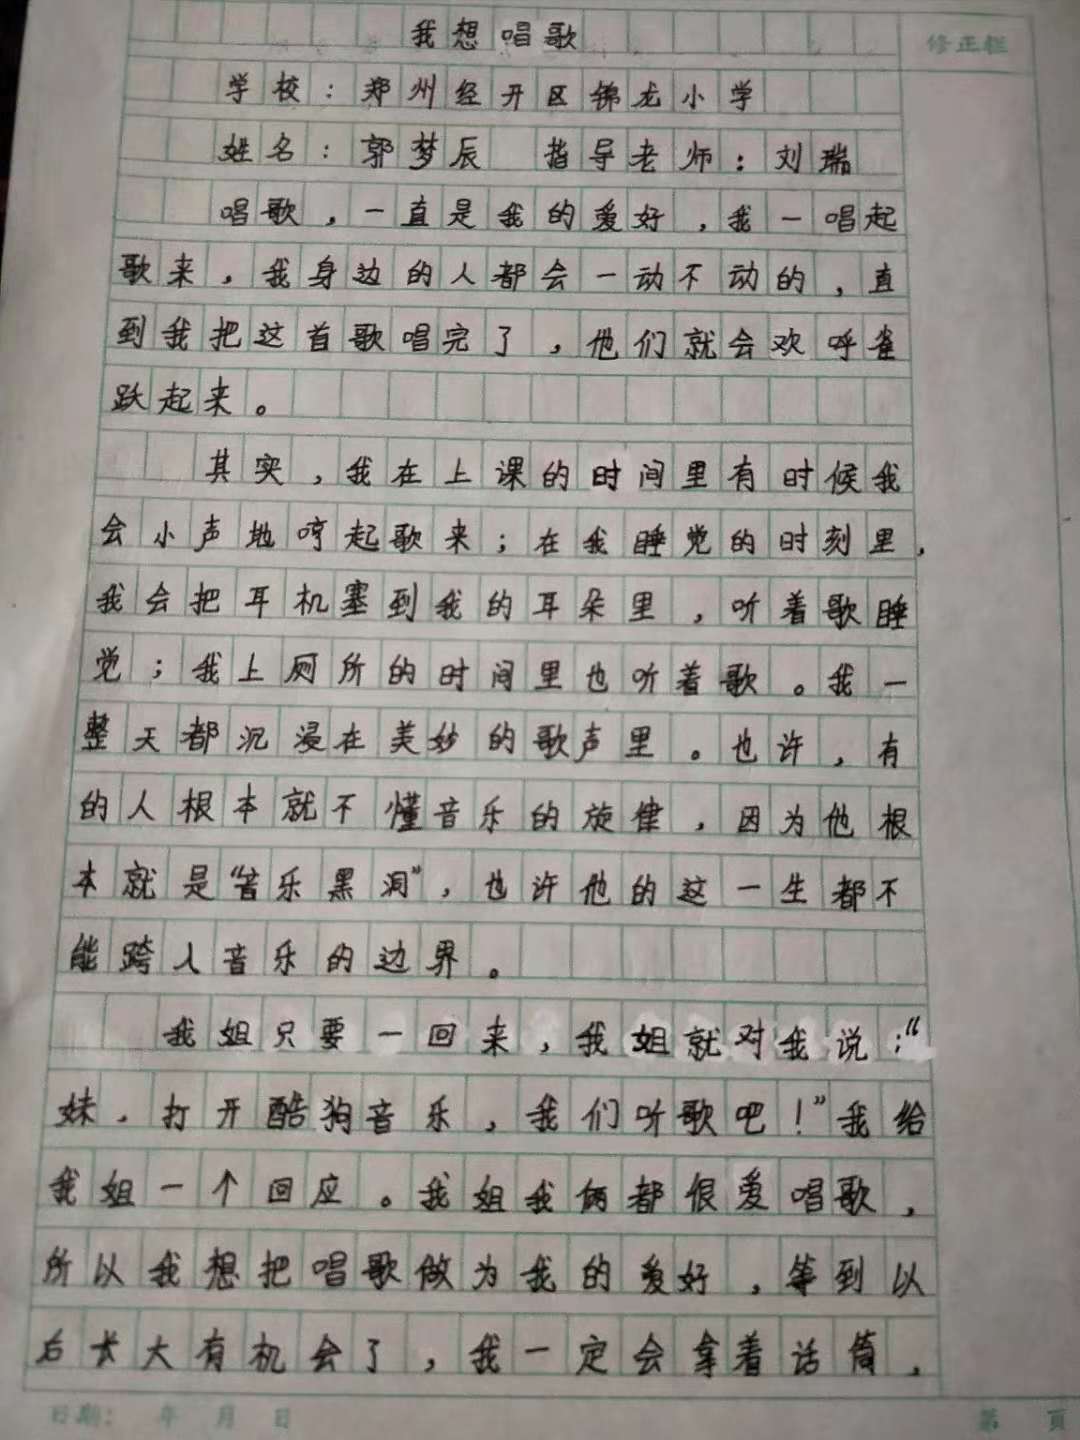 我想唱歌
修正栏
学校：郑州经开区锦龙小学
姓名：郭梦辰 指导老师：刘瑞
唱歌，一直是我的爱好，我一唱起
歌来，我身边的人都会一动不动的，直
到我把这首歌唱完了，他们就会欢呼雀
跃起来。
其实，我在上课的时间里有时候我
会小声地哼起歌来；在我睡觉的时刻里，
我会把耳机塞到我的耳朵里，听着歌睡
觉；我上厕所的时间里也听着歌。我一
整天都沉浸在美妙的歌声里。也许，有
的人根本就不懂音乐的旋律，因为他根
本就是“音乐黑洞”，也许他的这一生都不
能跨入音乐的边界。
我姐只要一回来，我姐就对我说：“
妹，打开酷狗音乐，我们听歌吧！”我给
我姐一个回应。我姐我俩都很爱唱歌，
所以我想把唱歌做为我的爱好，等到以
后长大有机会了，我一定会拿着话筒，
日期： 年 月 日
第 页